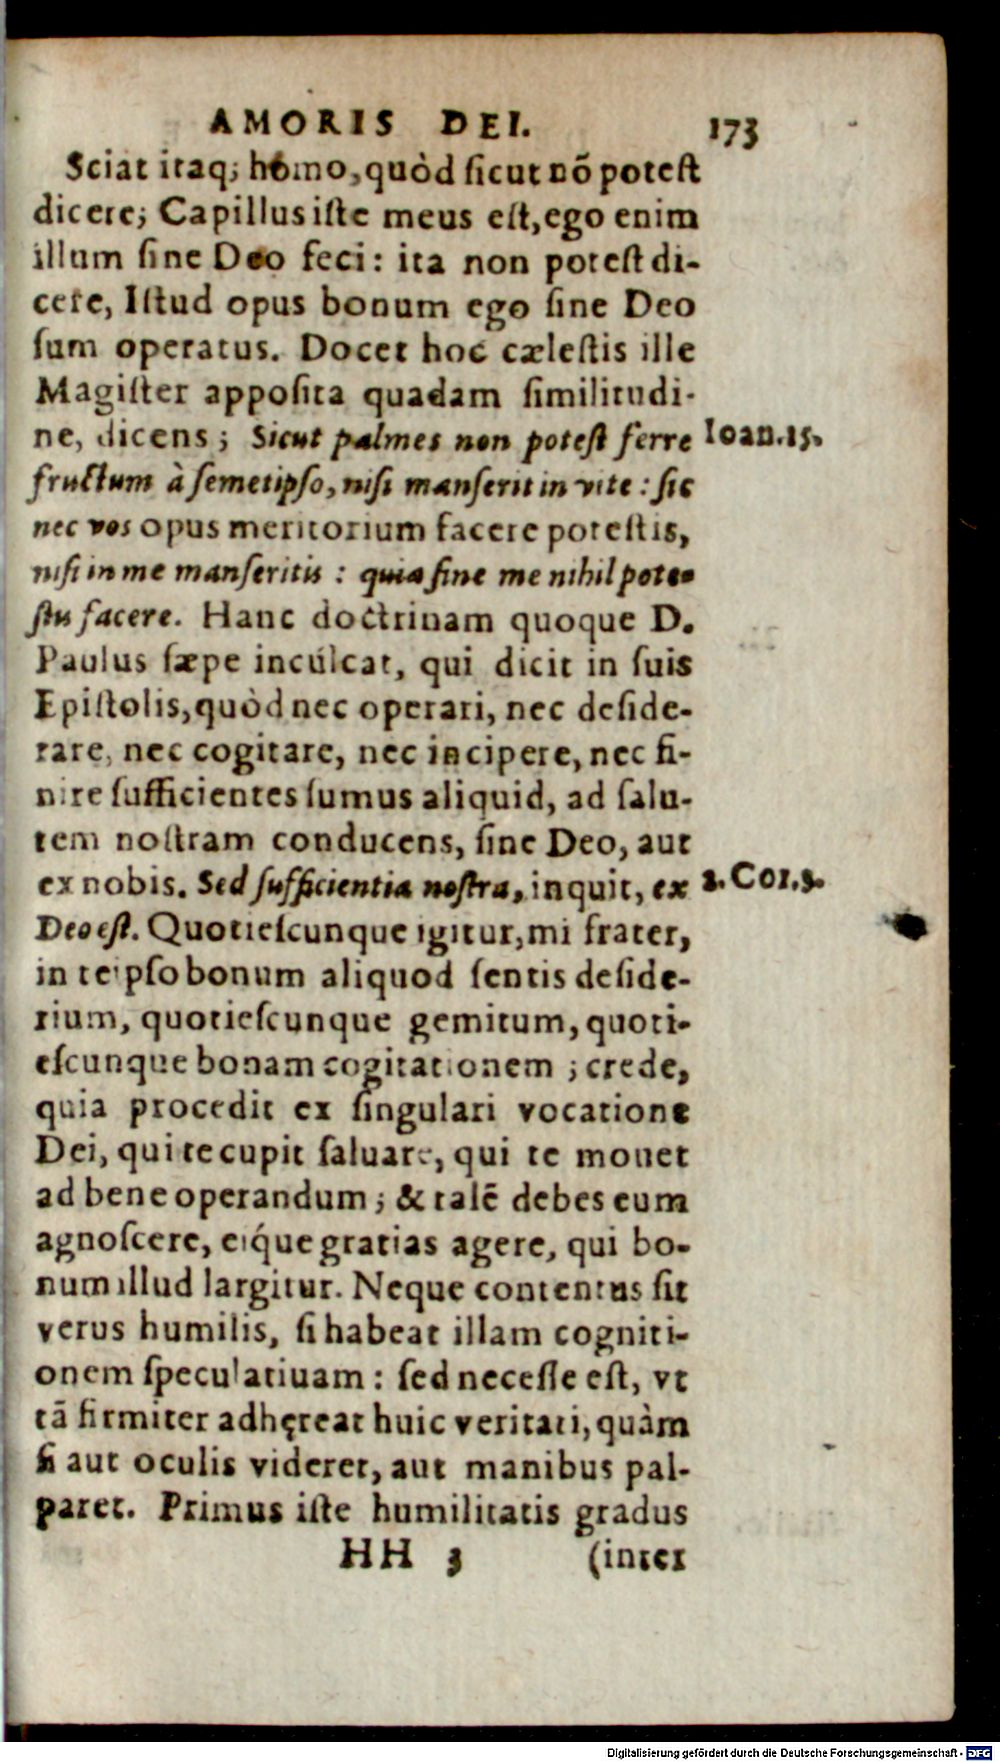 AMORIS DEI. 173
Sciat itaq; homo, quòd ſicut nõ poteſt
dicere; Capillus iſte meus eſt, ego enim
illum ſine Deo feci: ita non poteſt di-
cere, Iſtud opus bonum ego ſine Deo
ſum operatus. Docet hoc cæleſtis ille
Magiſter appoſita quadam ſimilitudi-
ne, dicens; Sicut palmes non poteſt ferre Ioan.15.
fructum à ſemetipſo, niſi manſerit in vite: ſic
nec vos opus meritorium facere poteſtis,
niſi in me manſeritis: quia ſine me nihil pote-
ſtis facere. Hanc doctrinam quoque D.
Paulus ſæpe inculcat, qui dicit in ſuis
Epiſtolis, quòd nec operari, nec deſide-
rare, nec cogitare, nec incipere, nec fi-
nire ſufficientes ſumus aliquid, ad ſalu-
tem noſtram conducens, ſine Deo, aut
ex nobis. Sed ſufficientia noſtra, inquit, ex 2.Cor.3.
Deo eſt. Quotieſcunque igitur, mi frater,
in teipſo bonum aliquod ſentis deſide-
rium, quotieſcunque gemitum, quoti-
eſcunque bonam cogitationem; crede,
quia procedit ex ſingulari vocatione
Dei, qui te cupit ſaluare, qui te mouet
ad bene operandum; & talẽ debes eum
agnoſcere, eiq́ue gratias agere, qui bo-
num illud largitur. Neque contentus ſit
verus humilis, ſi habeat illam cogniti-
onem ſpeculatiuam: ſed neceſſe eſt, vt
tã firmiter adhęreat huic veritati, quàm
ſi aut oculis videret, aut manibus pal-
paret. Primus iſte humilitatis gradus
HH 3 (inter
Digitalisierung gefördert durch die Deutsche Forschungsgemeinschaft - DFG